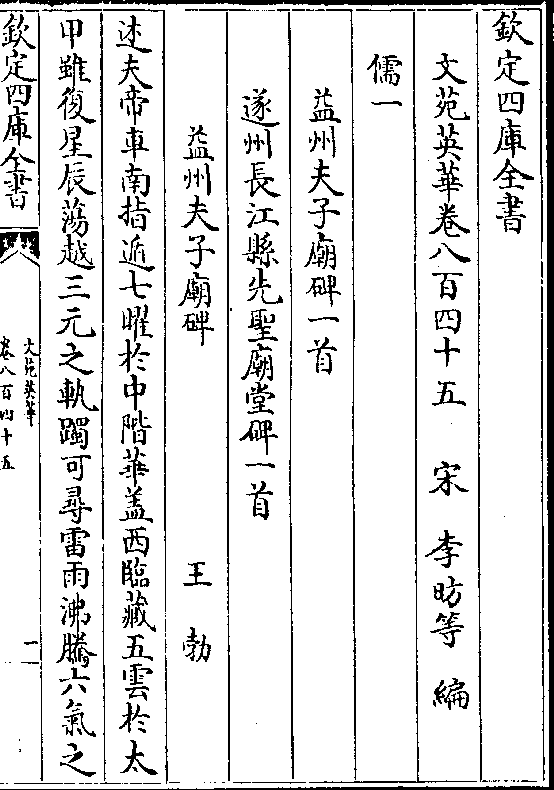 欽定四庫全書
文苑英華卷八百四十五 宋 李昉等 編
儒一
益州夫子廟碑一首
遂州長江縣先聖廟堂碑一首
益州夫子廟碑 王勃
述夫帝車南指遁七曜於中階華盖西臨藏五雲於太
甲雖復星辰蕩越三元之軌躅可尋雷雨沸騰六氣之
欽定四庫全書
文苑英華
卷八百四十五
一